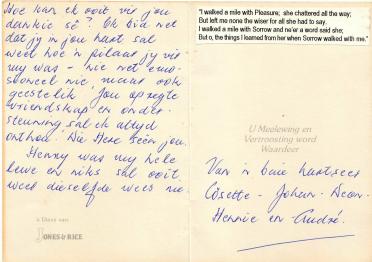 Hoe kan ek ooit vir jou
dankie sê? Ek bid net
dat jy in jou hart sal
weet hoe 'n pilaar jy vir
my was - nie net emo-
sioneel nie, maar ook
geestelik. Jou opregte
vriendskap en onder-
steuning sal ek altyd
onthou. Die Here seën jou.
Henny was my hele
lewe en niks sal ooit
weer dieselfde wees nie.
'n Diens van
JONES & RICE
"I walked a mile with Pleasure; she chattered all the way;
But left me none the wiser for all she had to say.
I walked a mile with Sorrow and ne'er a word said she;
But o, the things I learned from her when Sorrow walked with me."
U Meelewing en
Vertroosting word
Waardeer
Van 'n baie hartseer
Cosette - Johan - Deon -
Hennie en André.